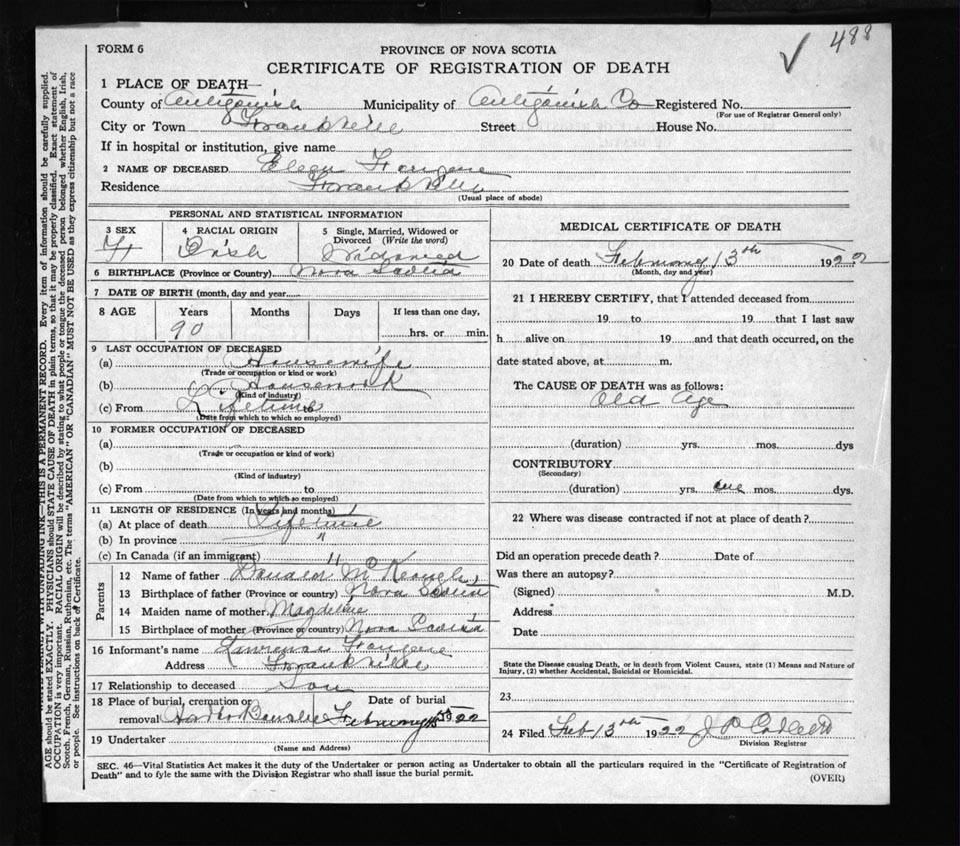 ✓ 488
FORM 6
PROVINCE OF NOVA SCOTIA
CERTIFICATE OF REGISTRATION OF DEATH
1 PLACE OF DEATH—
County of Antigonish Municipality of Antigonish Co Registered No.
(For use of Registrar General only)
City or Town Frankville Street House No.
If in hospital or institution, give name
2 NAME OF DECEASED
Residence Frankville
(Usual place of abode)
PERSONAL AND STATISTICAL INFORMATION
3 SEX
4 RACIAL ORIGIN
5 Single, Married, Widowed or Divorced (Write the word)
F Irish Widowed
6 BIRTHPLACE (Province or Country) Nova Scotia
7 DATE OF BIRTH (month, day and year)
8 AGE Years Months Days If less than one day,
90 hrs. or min.
9 LAST OCCUPATION OF DECEASED
(a) Housewife
(Trade or occupation or kind or work)
(b) Housework
(Kind of industry)
(c) From Lifetime to
(Date from which to which so employed)
10 FORMER OCCUPATION OF DECEASED
(a)
(Trade or occupation or kind of work)
(b)
(Kind of industry)
(c) From to
(Date from which to which so employed)
11 LENGTH OF RESIDENCE (In years and months)
(a) At place of death Lifetime
(b) In province "
(c) In Canada (if an immigrant) "
Parents
12 Name of father
13 Birthplace of father (Province or country) Nova Scotia
14 Maiden name of mother Magdeline
15 Birthplace of mother (Province or country) Nova Scotia
16 Informant's name Lawrence
Address Frankville
17 Relationship to deceased Son
18 Place of burial, cremation or Date of burial
removal February 15 1922
19 Undertaker
(Name and Address)
MEDICAL CERTIFICATE OF DEATH
20 Date of death February 13th 1922
(Month, day and year)
21 I HEREBY CERTIFY, that I attended deceased from
19 to 19 that I last saw
h alive on 19 and that death occurred, on the
date stated above, at m.
The CAUSE OF DEATH was as follows:
Old Age
(duration) yrs. mos. dys
CONTRIBUTORY
(Secondary)
(duration) yrs. one mos. dys.
22 Where was disease contracted if not at place of death?
Did an operation precede death? Date of
Was there an autopsy?
(Signed) M.D.
Address
Date
State the Disease causing Death, or in death from Violent Causes, state (1) Means and Nature of
Injury, (2) whether Accidental, Suicidal or Homicidal.
23
24 Filed Feb 13th 1922 J P
Division Registrar
SEC. 46—Vital Statistics Act makes it the duty of the Undertaker or person acting as Undertaker to obtain all the particulars required in the "Certificate of Registration of
Death" and to fyle the same with the Division Registrar who shall issue the burial permit.
(OVER)
WITH UNFADING INK—THIS IS A PERMANENT RECORD. Every item of information should be carefully supplied.
AGE should be stated EXACTLY. PHYSICIANS should STATE CAUSE OF DEATH in plain terms, so that it may be properly classified. Exact statement of
OCCUPATION is very important. RACIAL ORIGIN will be described by stating to what people or tongue the deceased person belonged whether English, Irish,
Scotch, French, German, Russian, Ruthenian, etc. The terms "AMERICAN" OR "CANADIAN" MUST NOT BE USED as they express citizenship but not a race
or people. See instructions on back of Certificate.